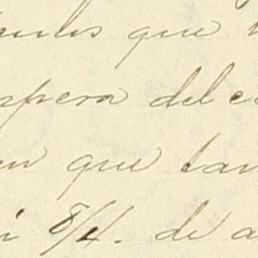 que
spera del
en que tan
8/4. de a